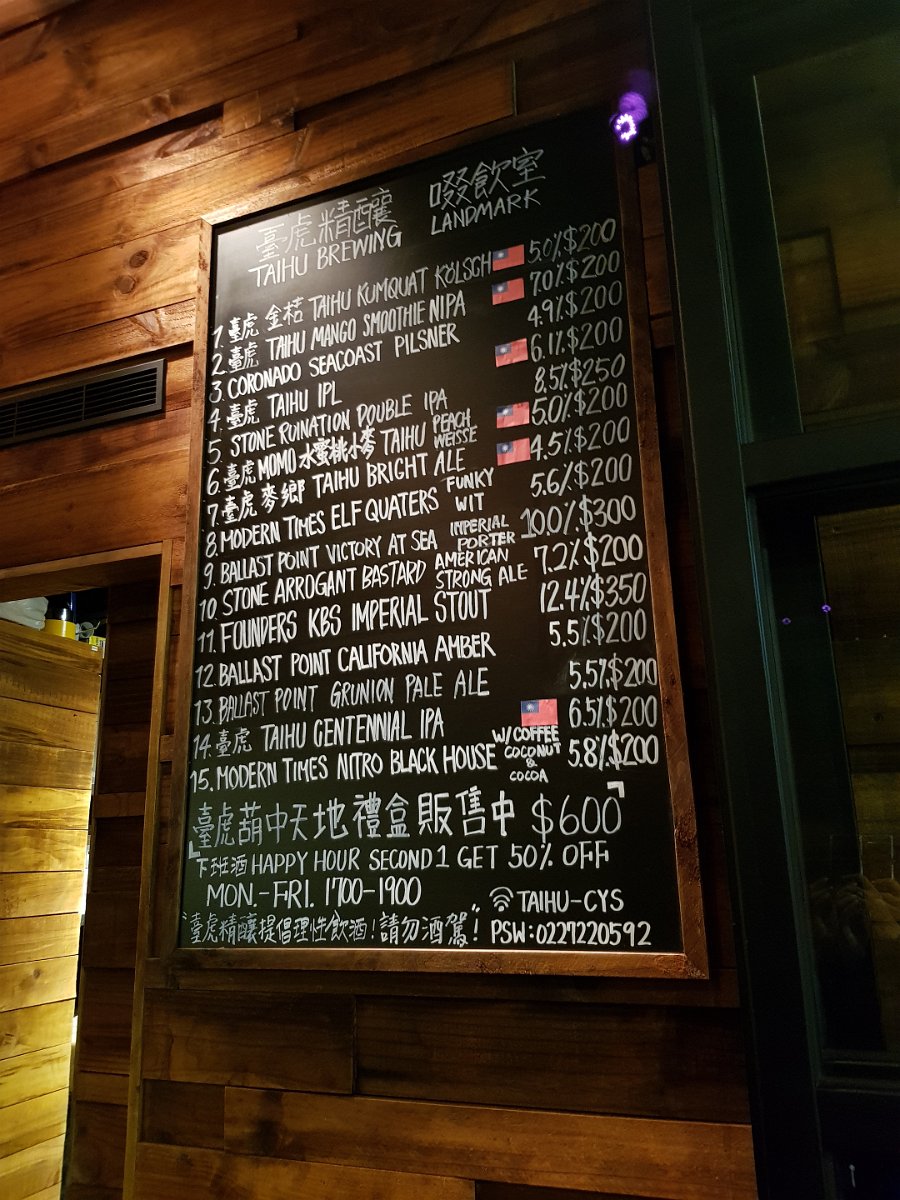 臺虎精釀 啜飲室
TAIHU BREWING LANDMARK
1. 臺虎 金桔 TAIHU KUMQUAT KÖLSCH 5.0% $200
2. 臺虎 TAIHU MANGO SMOOTHIE NIPA 7.0% $200
3. CORONADO SEACOAST PILSNER 4.9% $200
4. 臺虎 TAIHU IPL 6.1% $200
5. STONE RUINATION DOUBLE IPA 8.5% $250
6. 臺虎 MOMO 水蜜桃小麥 TAIHU PEACH WEISSE 5.0% $200
7. 臺虎 麥鄉 TAIHU BRIGHT ALE 4.5% $200
8. MODERN TIMES ELF QUATERS FUNKY WIT 5.6% $200
9. BALLAST POINT VICTORY AT SEA IMPERIAL PORTER 10.0% $300
10. STONE ARROGANT BASTARD AMERICAN STRONG ALE 7.2% $200
11. FOUNDERS KBS IMPERIAL STOUT 12.4% $350
12. BALLAST POINT CALIFORNIA AMBER 5.5% $200
13. BALLAST POINT GRUNION PALE ALE 5.5% $200
14. 臺虎 TAIHU CENTENNIAL IPA 6.5% $200
15. MODERN TIMES NITRO BLACK HOUSE W/ COFFEE COCONUT & COCOA 5.8% $200
臺虎葫中天地禮盒販售中 $600
下班酒 HAPPY HOUR SECOND 1 GET 50% OFF
MON.-FRI. 1700-1900
TAIHU-CYS
臺虎精釀提倡理性飲酒!請勿酒駕!! PSW:0227220592